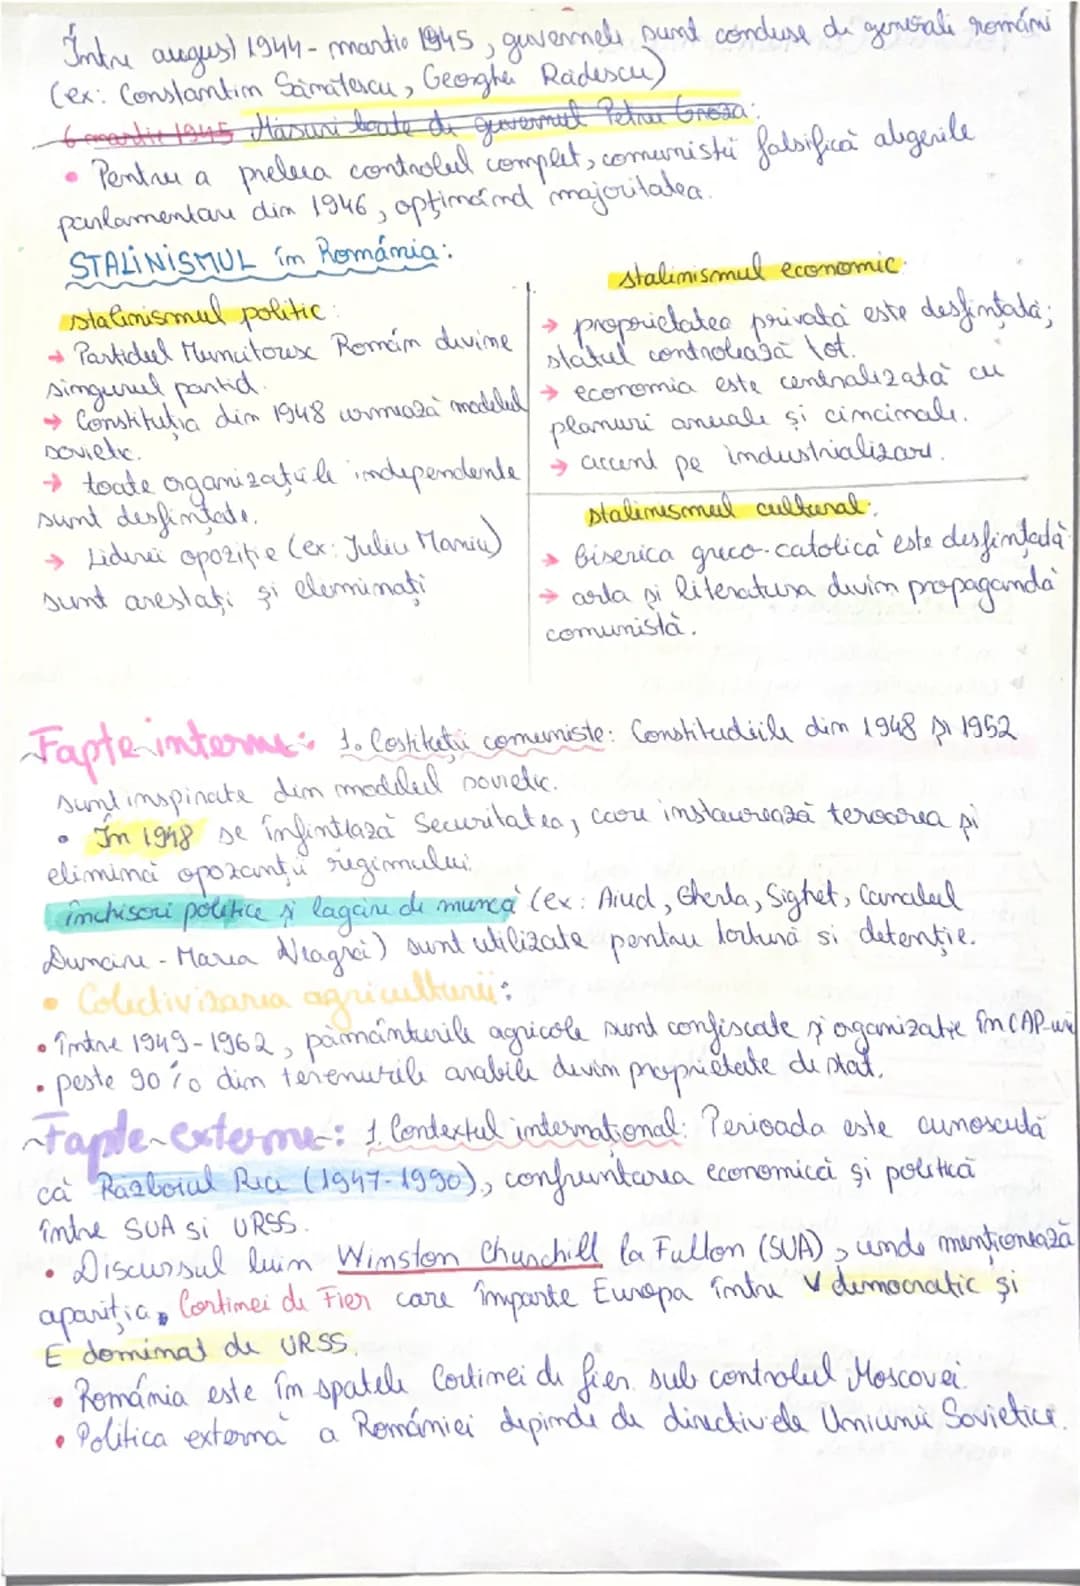 Între august 1944 - martie 1945, guvernele sunt conduse de generali români
(ex: Constantin Sămătescu, Georghe Rădescu)
6 martie 1945 Măsuri luate de guvernul Petru Groza:
• Pentru a prelua controlul complet, comuniștii falsifică alegerile
parlamentare din 1946, opținând majoritatea.
STALINISMUL în România:
stalinismul politic:
→ Partidul Muncitoresc Român devine
singurul partid.
→ Constituția din 1948 urmează modelul
sovietic.
→ toate organizațiile independente
sunt desființate.
→ Liderii opoziție (ex: Juliu Maniu)
sunt arestați și eleminați
stalinismul economic:
→ proprietatea privată este desființată;
statul controlează tot.
→ economia este centralizată cu
planuri anuale și cincinale.
→ accent pe industrializare.
stalinismul cultural:
→ Biserica greco-catolică este desființată
→ arta și literatura devin propagandă
comunistă.
Fapte interne: 1. Costituții comuniste: Constituțiile din 1948 și 1952
sunt inspirate din modelul sovietic.
• În 1948 se înființiază Securitatea, care instaurează teroarea și
elimină opozanții regimului.
închisori politice și lagăre de muncă (ex: Aiud, Gherla, Sighet, Canalul
Dunăre - Marea Neagră) sunt utilizate pentru tortură si detenție.
• Colectivizarea agriculturii:
• între 1949-1962, pământurile agricole sunt confiscate și organizate în CAP-uri
• peste 90% din terenurile arabile devin proprietate de stat.
Fapte externe: 1. Contextul internațional: Perioada este cunoscută
că Războiul Rece (1947-1990), confruntarea economică și politică
între SUA si URSS.
• Discursul luim Winston Churchill la Fulton (SUA), unde menționează
apariția Cortinei de Fier care împarte Europa între V democratic și
E dominat de URSS.
• România este în spatele Cortinei de fier sub controlul Moscovei.
• Politica externă a României depinde de directivele Uniunii Sovietice.